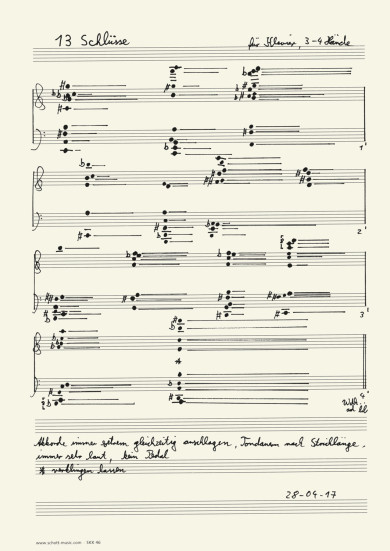 13 Schlüsse
für Klavier, 3-4 Hände
1'
2'
3'
4'
Wdh.
ad lib
Akkorde immer extrem gleichzeitig anschlagen, Tondauern nach Strichlänge.
immer sehr laut, kein Pedal
verklingen lassen
28-04-17
www.schott-music.com